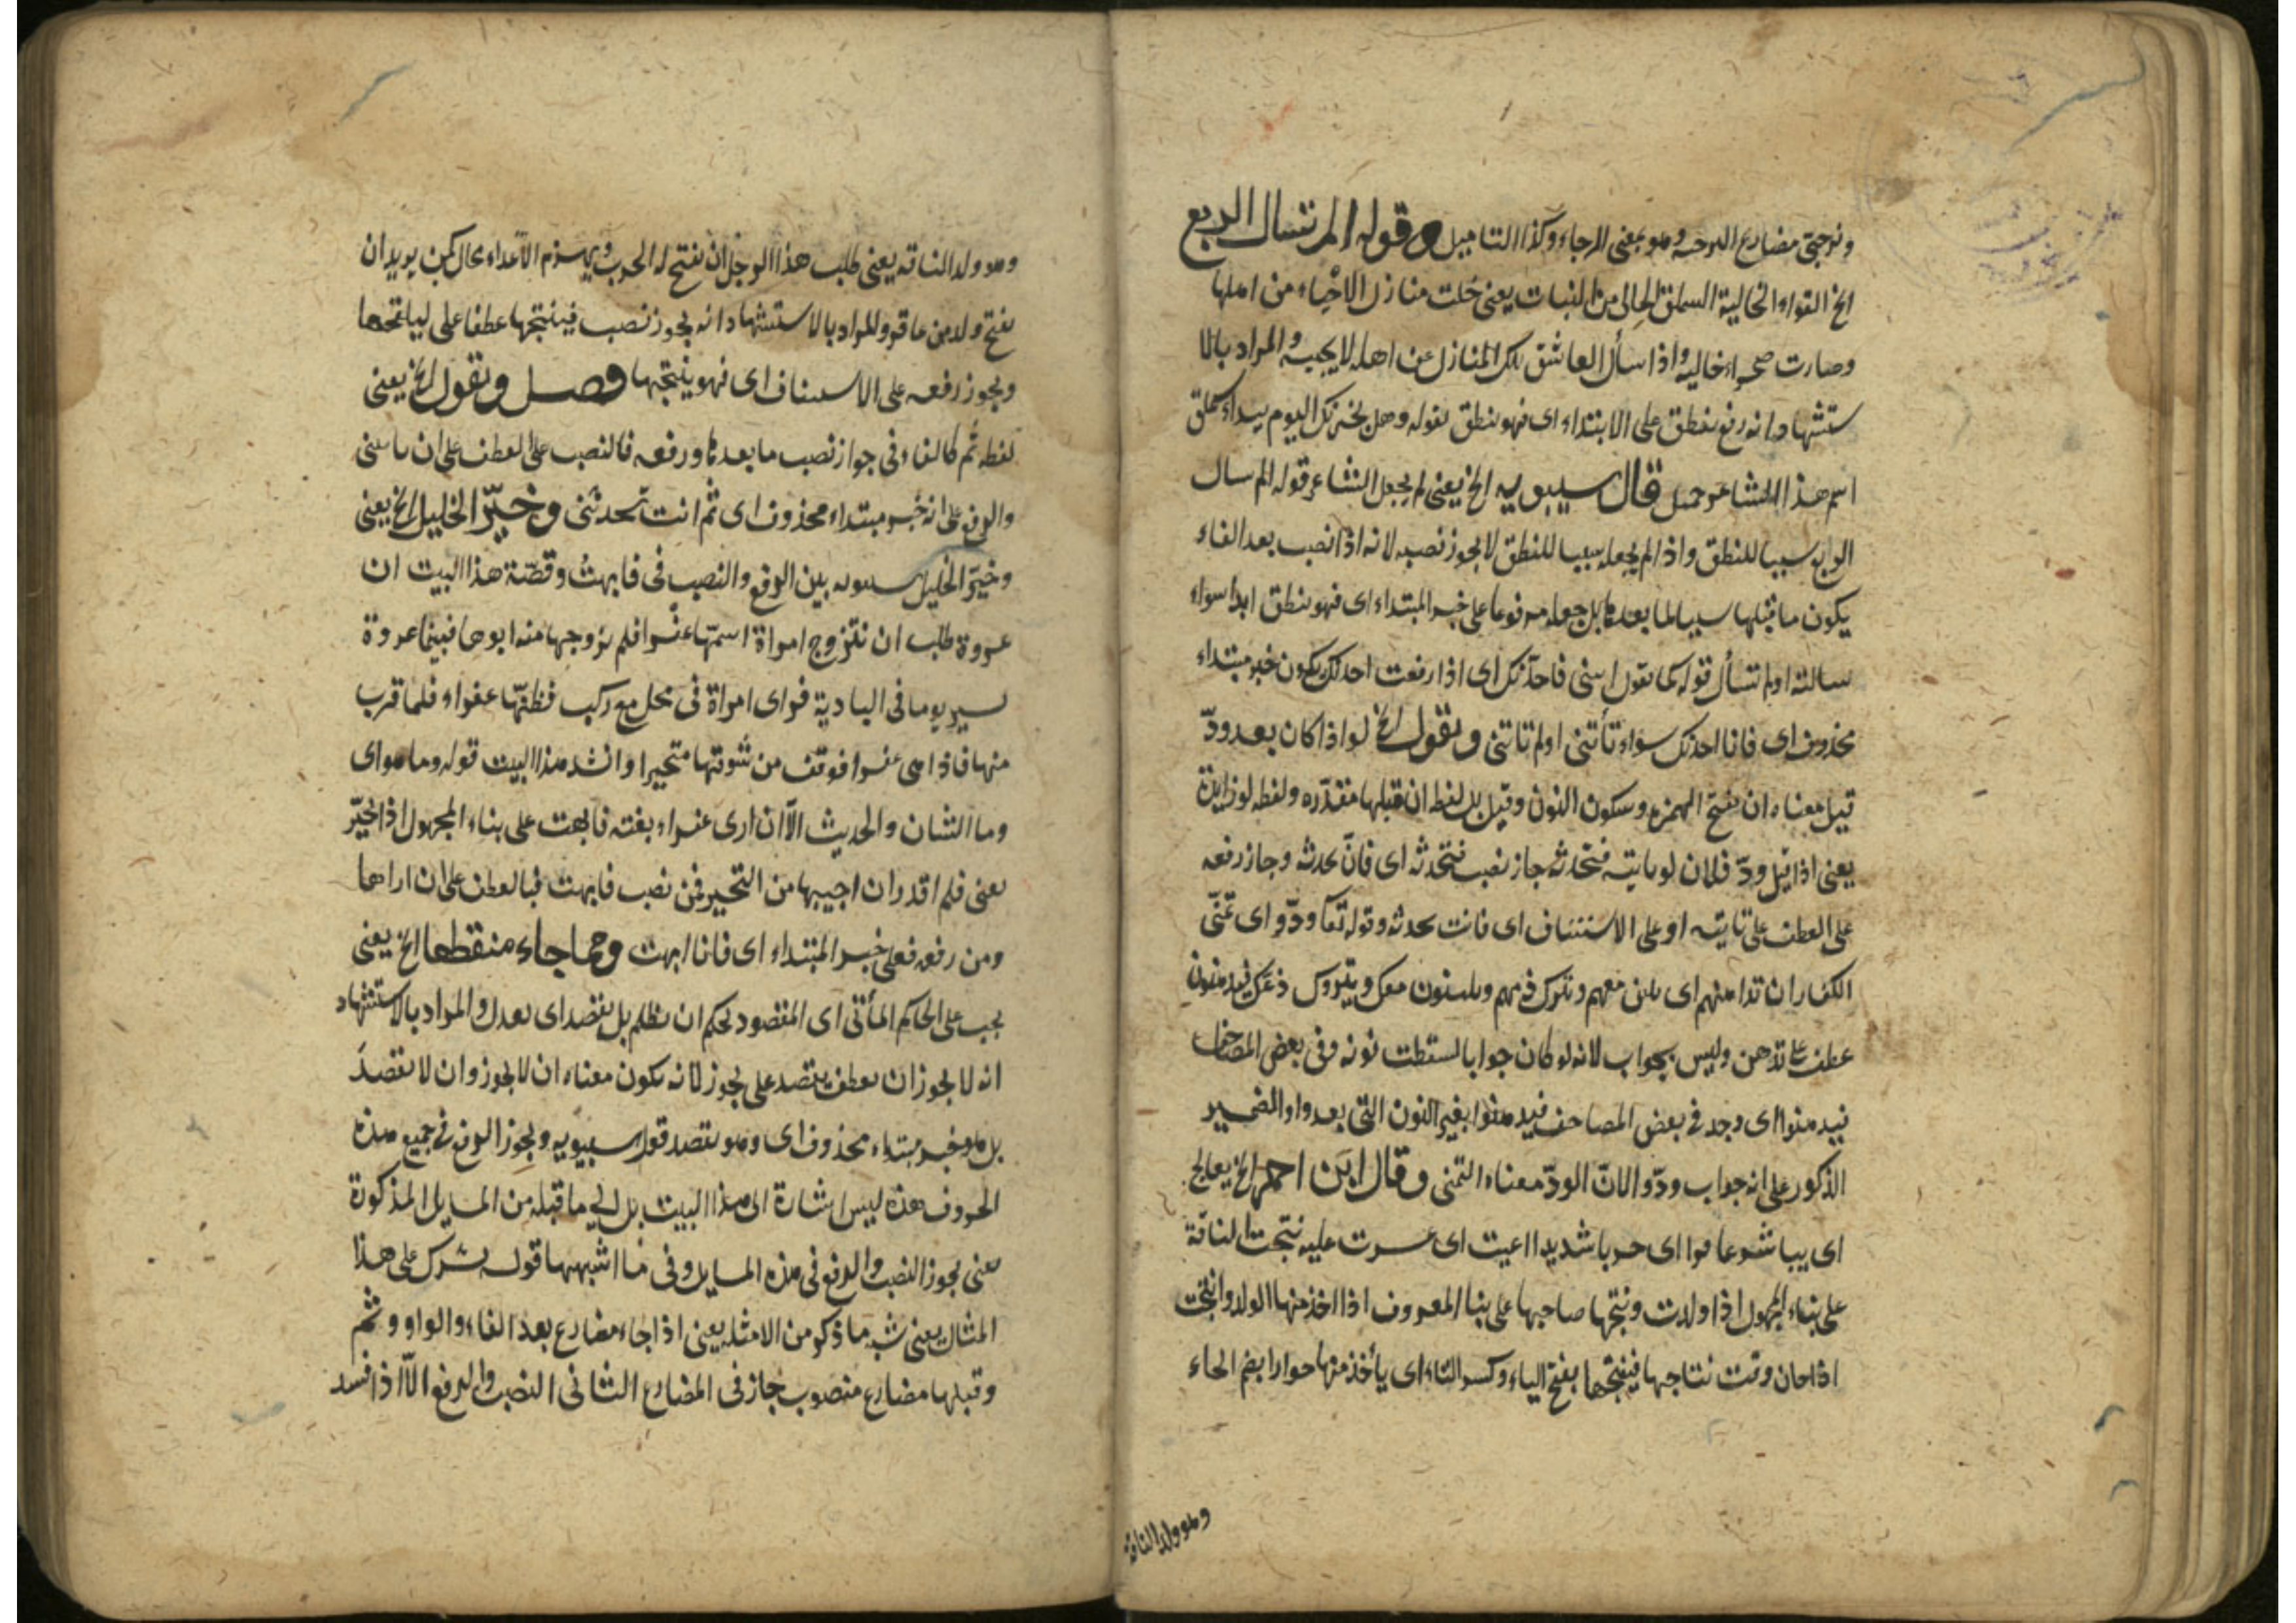 ونرجى مضارع الترجية وهو بمعنى الرجاء وكذا التاميل وقوله الم تسال الربع
الخ القواء الخالية السملق الخالى من النبات يعنى خلت منازل الاحياء من اهلها
وصارت صحراء خالية واذا سأل العاشق تلك المنازل عن اهله لا يجيبه والمراد بالا
ستشهاد انه رفع ينطق على الابتداء اى فهو ينطق قوله وهل يخبرنك اليوم بيداء سملق
اسم هذا الشاعر جميل قال سيبويه الخ يعنى لم يجعل الشاعر قوله الم سال
الربع سببا للنطق واذا لم يجعله سببا للنطق لا يجوز نصبه لانه اذا نصب بعد الفاء
يكون ما قبلها سببا لما بعدها بل جعله مرفوعا على خبر المبتداء اى فهو ينطق ابدا سواء
سالته او لم تسأل قوله كما تقول ائتنى فاحدثك اى اذا رفعت احدثك يكون خبر مبتداء
محذوف اى فانا احدثك سواء تأتنى او لم تاتنى وتقول الخ لو اذا كان بعد ودّ
قيل معناه ان بفتح الهمزة وسكون النون وقيل بل لفظ ان قبلها مقدّرة ولفظه لو زايدة
يعنى اذا قيل ودّ فلان لو تاتيه فتحدثه جاز نصب فتحدثه اى فان تحدثه وجاز رفعه
على العطف على تاتيه او على الاستئناف اى فانت تحدثه وقوله تعا ودّوا اى تمنّى
الكفار ان تداهنهم اى تلين معهم وتترك ذمهم ويلينون معك ويتركوك ذمك فيدهنون
عطف على تدهن وليس بجواب لانه لو كان جوابا لسقطت نونه وفى بعض المصاحف
فيدهنوا اى وجد فى بعض المصاحف فيدهنوا بغير النون التى بعد واو الضمير
الذكور على انه جواب ودّوا لانّ الودّ معناه التمنى وقال ابن احمر الخ يعالج
اى يباشر عاقرا اى حربا شديدا اعيت اى عسرت عليه نتجت الناقة
على بناء المجهول اذا ولدت ونتجها صاحبها على بنا المعروف اذا اخذ منها الولد وانتجت
اذا حان وقت نتاجها فينتجها بفتح الياء وكسر التاء اى يأخذ منها حوارا بضم الحاء
وهو ولد الناقة
وهو ولد الناقة يعنى طلب هذا الرجل ان تفتح له الحرب ويهزم الاعداء كمن يريد ان
يفتح ولد من عاقر والمراد بالاستشهاد انه يجوز نصب فينتجها عطفا على ليلقحها
ويجوز رفعه على الاستيناف اى فهو ينتجها فصل وتقول الخ يعنى
لفظه ثم كالفاء فى جواز نصب ما بعدها ورفعه فالنصب على العطف على ان تاتينى
والرفع على انه خبر مبتداء محذوف اى ثم انت تحدثنى وخيّر الخليل الخ يعنى
وخيّر الخليل سيبويه بين الرفع والنصب فى فابهتُ وقصّة هذا البيت ان
عروة طلب ان تتزوج امراة اسمها عفرا فلم يزوجها منه ابوها فبينما عروة
يسير يوما فى البادية فراى امراة فى محل مع ركب فظنّها عفراء فلما قرب
منها فاذا هى عفرا فوقف من شوقها متحيرا وانشد هذا البيت قوله وما هو اى
وما الشان والحديث الّا ان ارى عفراء بغتة فابهت على بناء المجهول اذا تحيّر
يعنى فلم اقدر ان اجيبها من التحير فمن نصب فابهت فبالعطف على ان اراها
ومن رفعه فعلى خبر المبتداء اى فانا ابهت ومما جاء منقطعا الخ يعنى
يجب على الحاكم المأتى اى المقصود لحكم ان لا يظلم بل يقصد اى يعدل والمراد بالاستشهاد
انه لا يجوز ان يعطف يقصد على يجوز لانه يكون معناه ان لا يجوز وان لا يقصدَ
بل هو خبر مبتداء محذوف اى وهو يقصد قول سيبويه ويجوز الرفع فى جميع هذه
الحروف هذه ليس اشارة الى هذا البيت بل الى ما قبله من المسايل المذكورة
يعنى يجوز النصب والرفع فى هذه المسايل وفى ما اشبهها قوله يشرك على هذا
المثال يعنى شبه ما ذكر من الامثلة يعنى اذا جاء مضارع بعد الفاء والواو وثم
وقبلها مضارع منصوب جاز فى المضارع الثانى النصب والرفع الّا اذا فسد